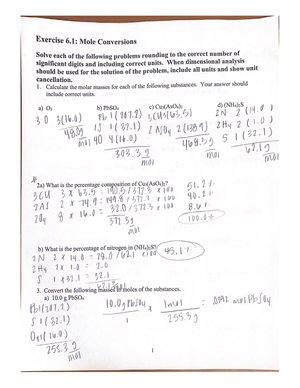 Exercise 6.1: Mole Conversions
Solve each of the following problems rounding to the correct number of
significant digits and including correct units. When dimensional analysis
should be used for the solution of the problem, include all units and show unit
cancellation.
1. Calculate the molar masses for each of the following substances. Your answer should
include correct units.
a) O₃ b) PbSO₄ c) Cu₃(AsO₄)₂ d) (NH₄)₂S
3 O 3(16.0) Pb 1(207.2) 3 Cu 3(63.5) 2 N 2(14.0)
48.0 g mol 1 S 1(32.1) 2 (138.9) 2 Hy 2(1.0)
4 O 4(16.0) 468.3 g mol S 1(32.1)
303.3 g mol 62.1 g mol
2a) What is the percentage composition of Cu₃(AsO₄)₂?
3 CU 3 x 63.5 = 190.5/372.3 x 100 51.2%
2 AS 2 x 74.9 = 149.8/372.3 x 100 40.2%
2 Oy 8 x 16.0 = 32.0/372.3 x 100 8.6%
372.3 g mol 100.0%
b) What is the percentage of nitrogen in (NH₄)₂S?
2 N 2 x 14.0 = 28.0/62.1 x 100 45.1%
2 Hy 2 x 1.0 = 2.0
S 1 x 32.1 = 32.1
62.1 g mol
3. Convert the following masses to moles of the substances.
a) 10.0 g PbSO₄
Pb 1(207.2) 10.0 g PbSO₄ x 1 mol = .0392 mol PbSO₄
S 1(32.1) 1 255.3 g
Oy 1(16.0)
255.3 g mol
1